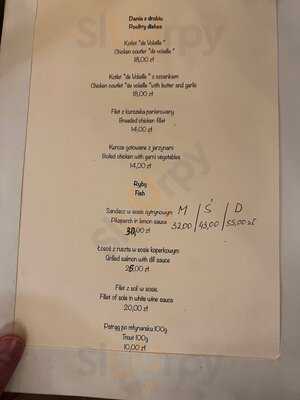 Dania z drobiu
Poultry dishes
Kotlet "de Volaille"
Chicken courlet "de volaille"
18,00 zł
Kotlet "de Volaille" z czosnkiem
Chicken courlet "de volaille" with butter and garlic
18,00 zł
Filet z kurczaka panierowany
Breaded chicken fillet
14,00 zł
Kurcze gotowane z jarzynami
Boiled chicken with garni vegetables
14,00 zł
Ryby
Fish
Sandacz w sosie cytrynowym M / Ś / D
Pikeperch in lemon sauce 32,00 / 43,00 / 55,00 zł
Łosoś z rusztu w sosie koperkowym
Grilled salmon with dill sauce
zł
Filet z soli w sosie
Fillet of sole in white wine sauce
20,00 zł
Pstrąg po młynarsku 100g
Trout 100g
10,00 zł